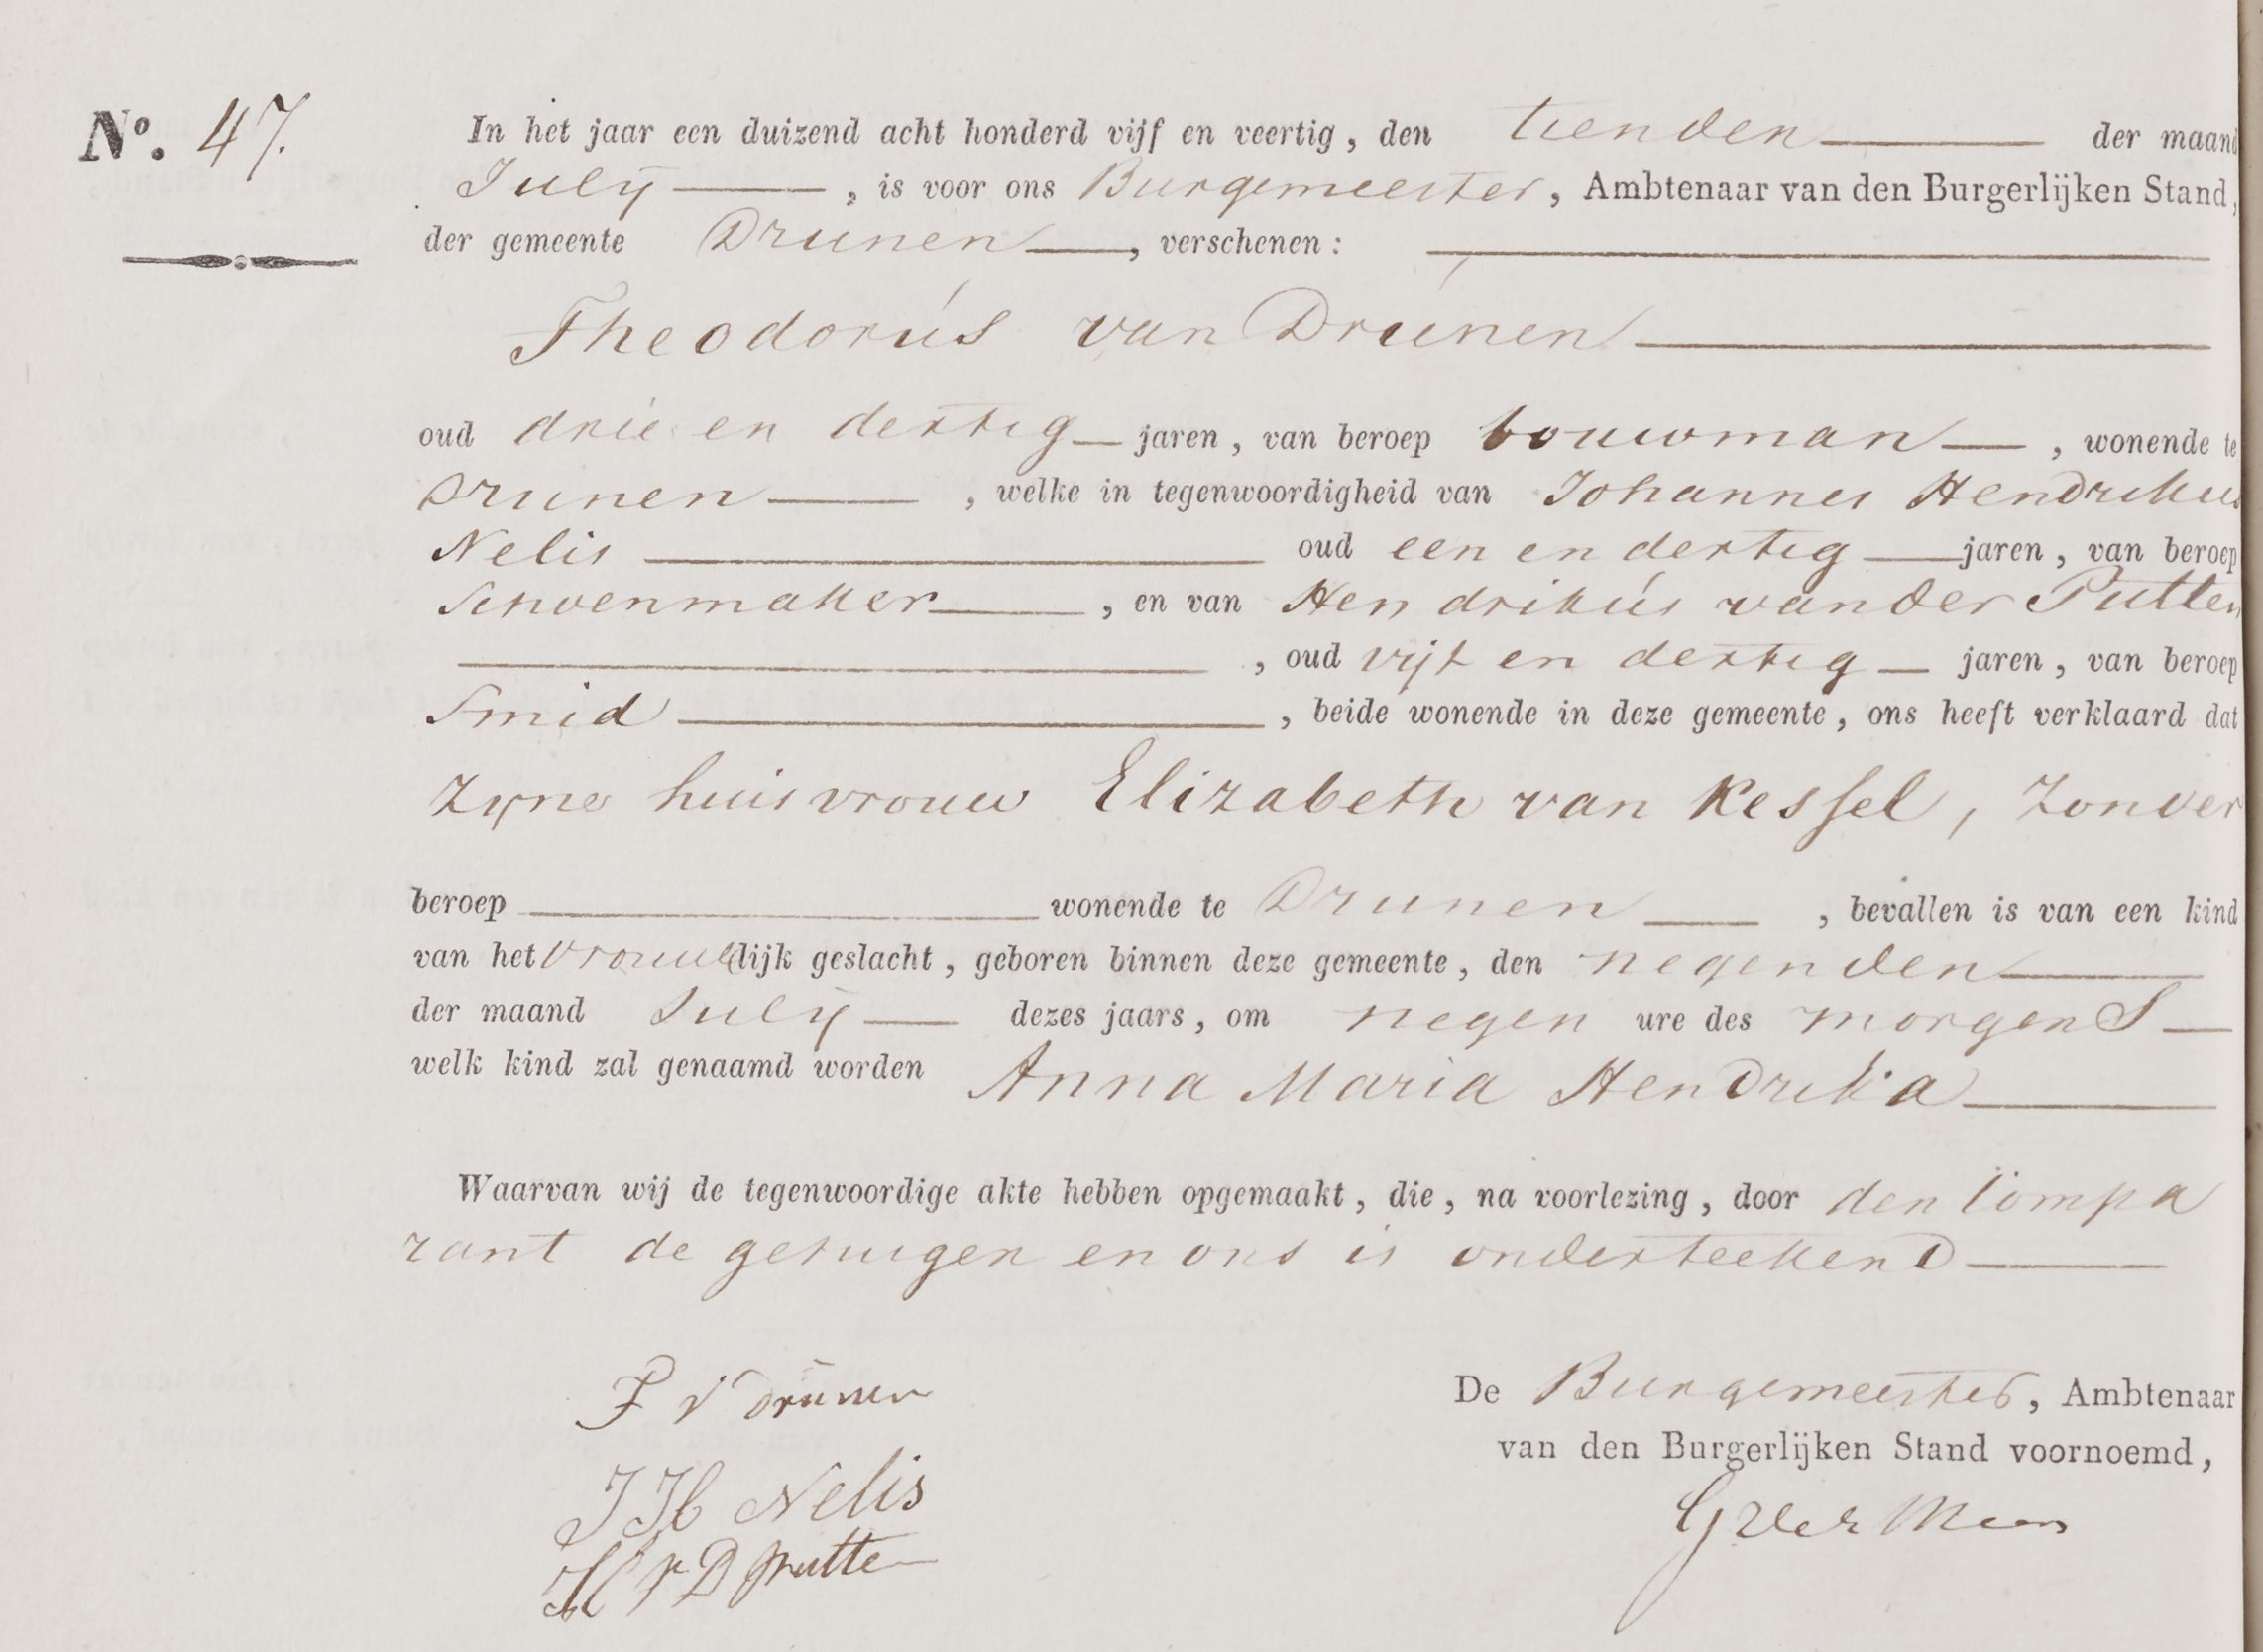 No. 47.
In het jaar een duizend acht honderd vijf en veertig, den tienden der maand
July, is voor ons Burgemeester, Ambtenaar van den Burgerlijken Stand,
der gemeente Drunen, verschenen:
Theodorus van Drunen
oud drie en dertig jaren, van beroep bouwman, wonende te
Drunen, welke in tegenwoordigheid van Johannes Hendrikus
Nelis oud een en dertig jaren, van beroep
Schoenmaker, en van Hendrikus van der Putten
, oud vijf en dertig jaren, van beroep
Smid, beide wonende in deze gemeente, ons heeft verklaard dat
zyne huisvrouw Elizabeth van Kessel, zonder
beroep wonende te Drunen, bevallen is van een kind
van het vrouwelijk geslacht, geboren binnen deze gemeente, den negenden
der maand July dezes jaars, om negen ure des morgens
welk kind zal genaamd worden Anna Maria Hendrika
Waarvan wij de tegenwoordige akte hebben opgemaakt, die, na voorlezing, door den Compa
rant de getuigen en ons is onderteekend
T V Drunen
J H Nelis
H V D Putten
De Burgemeester, Ambtenaar
van den Burgerlijken Stand voornoemd,